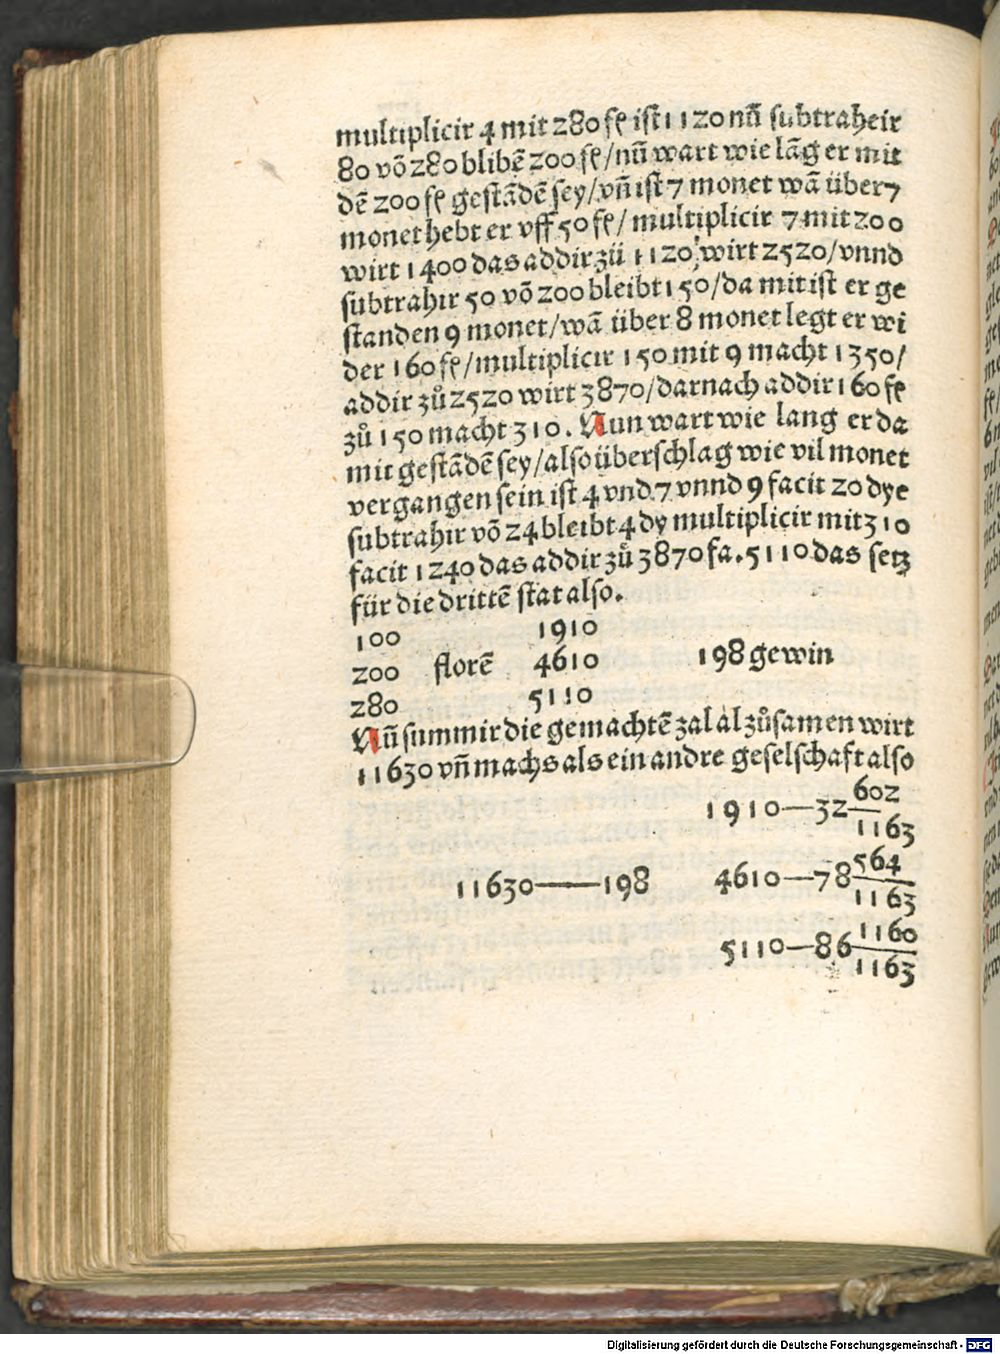 multiplicir 4 mit 280 fl̄ ist 1120 nū subtraheir
80 vō 280 blibē 200 fl̄/nū wart wie lāg er mit
dē 200 fl̄ gestādē sey/vn̄ ist 7 monet wā über 7
monet hebt er vff 50 fl̄/ multiplicir 7 mit 200
wirt 1400 das addir zü 1120 wirt 2520/vnnd
subtrahir 50 vō 200 bleibt 150/da mit ist er ge
standen 9 monet/wā über 8 monet legt er wi
der 160 fl̄/multiplicir 150 mit 9 macht 1350/
addir zů 2520 wirt 3870/darnach addir 160 fl̄
zů 150 macht 310. Nun wart wie lang er da
mit gestādē sey/also überschlag wie vil monet
vergangen sein ist 4 vnd 7 vnnd 9 facit 20 dye
subtrahir vō 24 bleibt 4 dy multiplicir mit 310
facit 1240 das addir zů 3870 fa. 5110 das setz
für die drittē stat also.
100 1910
200 florē 4610 198 gewin
280 5110
Nū summir die gemachtē zal al zůsamen wirt
11630 vn̄ machs als ein andre geselschaft also
1910—32 602/1163
11630——198 4610—78 564/1163
5110—86 1160/1163
Digitalisierung gefördert durch die Deutsche Forschungsgemeinschaft - DFG